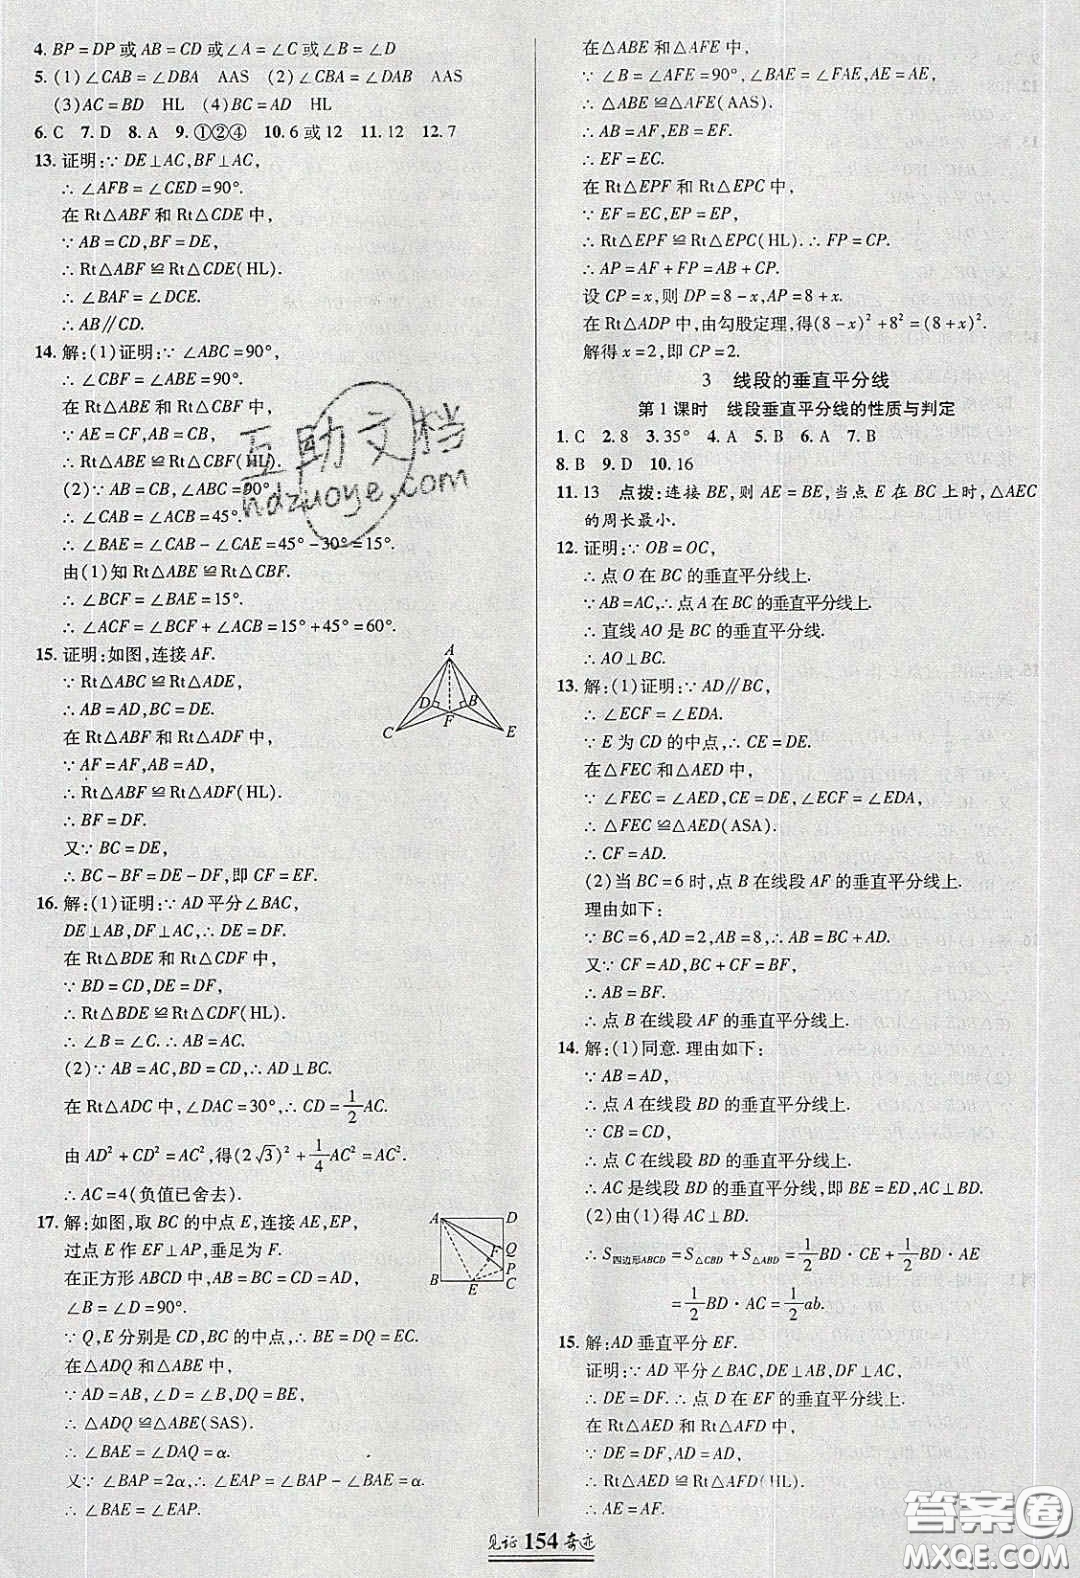 4. BP=DP或AB=CD或∠A=∠C或∠B=∠D
5. (1)∠CAB=∠DBA AAS (2)∠CBA=∠DAB AAS
(3)AC=BD HL (4)BC=AD HL
6. C 7. D 8. A 9. ①②④ 10. 6或12 11. 12 12. 7
13. 证明:∵DE⊥AC,BF⊥AC,
∴∠AFB=∠CED=90°.
在Rt△ABF和Rt△CDE中,
∵AB=CD,BF=DE,
∴Rt△ABF≌Rt△CDE(HL).
∴∠BAF=∠DCE.
∴AB∥CD.
14. 解:(1)证明:∵∠ABC=90°,
∴∠CBF=∠ABE=90°.
在Rt△ABE和Rt△CBF中,
∵AE=CF,AB=CB,
∴Rt△ABE≌Rt△CBF(HL).
(2)∵AB=CB,∠ABC=90°,
∴∠CAB=∠ACB=45°.
∴∠BAE=∠CAB-∠CAE=45°-30°=15°.
由(1)知Rt△ABE≌Rt△CBF.
∴∠BCF=∠BAE=15°.
∴∠ACF=∠BCF+∠ACB=15°+45°=60°.
15. 证明:如图,连接AF.
∵Rt△ABC≌Rt△ADE,
∴AB=AD,BC=DE.
在Rt△ABF和Rt△ADF中,
∵AF=AF,AB=AD,
∴Rt△ABF≌Rt△ADF(HL).
∴BF=DF.
又∵BC=DE,
∴BC-BF=DE-DF,即CF=EF.
A
D
B
C
F
E
16. 解:(1)证明:∵AD平分∠BAC,
DE⊥AB,DF⊥AC,∴DE=DF.
在Rt△BDE和Rt△CDF中,
∵BD=CD,DE=DF,
∴Rt△BDE≌Rt△CDF(HL).
∴∠B=∠C.∴AB=AC.
(2)∵AB=AC,BD=CD,∴AD⊥BC.
在Rt△ADC中,∠DAC=30°,∴CD=1/2AC.
由AD²+CD²=AC²,得(2√3)²+1/4AC²=AC².
∴AC=4(负值已舍去).
17. 解:如图,取BC的中点E,连接AE,EP,
过点E作EF⊥AP,垂足为F.
在正方形ABCD中,AB=BC=CD=AD,
∠B=∠D=90°.
∵Q,E分别是CD,BC的中点,∴BE=DQ=EC.
在△ADQ和△ABE中,
∵AD=AB,∠D=∠B,DQ=BE,
∴△ADQ≌△ABE(SAS).
∴∠BAE=∠DAQ=α.
又∵∠BAP=2α,∴∠EAP=∠BAP-∠BAE=α.
∴∠BAE=∠EAP.
A
D
Q
F
P
B
E
C
在△ABE和△AFE中,
∵∠B=∠AFE=90°,∠BAE=∠FAE,AE=AE,
∴△ABE≌△AFE(AAS).
∴AB=AF,EB=EF.
∴EF=EC.
在Rt△EPF和Rt△EPC中,
∵EF=EC,EP=EP,
∴Rt△EPF≌Rt△EPC(HL).∴FP=CP.
∴AP=AF+FP=AB+CP.
设CP=x,则DP=8-x,AP=8+x.
在Rt△ADP中,由勾股定理,得(8-x)²+8²=(8+x)².
解得x=2,即CP=2.
3 线段的垂直平分线
第1课时 线段垂直平分线的性质与判定
1. C 2. 8 3. 35° 4. A 5. B 6. A 7. B
8. B 9. D 10. 16
11. 13 点拨:连接BE,则AE=BE,当点E在BC上时,△AEC
的周长最小.
12. 证明:∵OB=OC,
∴点O在BC的垂直平分线上.
∵AB=AC,∴点A在BC的垂直平分线上.
∴直线AO是BC的垂直平分线.
∴AO⊥BC.
13. 解:(1)证明:∵AD∥BC,
∴∠ECF=∠EDA.
∵E为CD的中点,∴CE=DE.
在△FEC和△AED中,
∵∠FEC=∠AED,CE=DE,∠ECF=∠EDA,
∴△FEC≌△AED(ASA).
∴CF=AD.
(2)当BC=6时,点B在线段AF的垂直平分线上.
理由如下:
∵BC=6,AD=2,AB=8,∴AB=BC+AD.
又∵CF=AD,BC+CF=BF,
∴AB=BF.
∴点B在线段AF的垂直平分线上.
14. 解:(1)同意.理由如下:
∵AB=AD,
∴点A在线段BD的垂直平分线上.
∵CB=CD,
∴点C在线段BD的垂直平分线上.
∴AC是线段BD的垂直平分线,即BE=ED,AC⊥BD.
(2)由(1)得AC⊥BD.
∴S四边形ABCD=S△CBD+S△ABD=1/2BD·CE+1/2BD·AE
=1/2BD·AC=1/2ab.
15. 解:AD垂直平分EF.
证明:∵AD平分∠BAC,DE⊥AB,DF⊥AC,
∴DE=DF.∴点D在EF的垂直平分线上.
在Rt△AED和Rt△AFD中,
∵DE=DF,AD=AD,
∴Rt△AED≌Rt△AFD(HL).
∴AE=AF.
见证 154 奇迹
互助文档
hdzuoye.com
答案圈
MXQE.COM